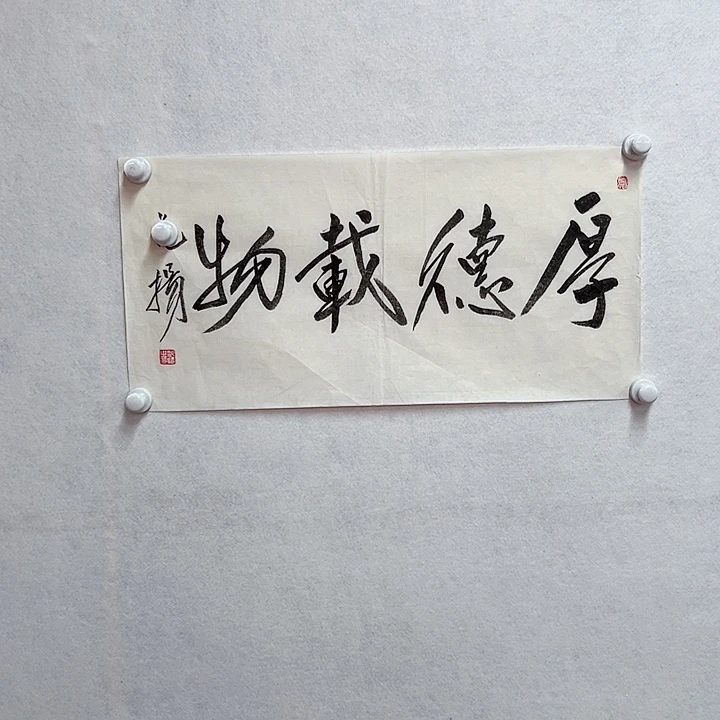 厚德載物
揚